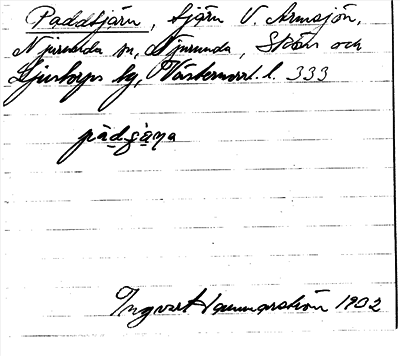 Paddtjärn, tjärn V. Armsjön,
Njurunda sn, Njurunda, Sköns och
Ljustorps tg, Västernorrl. l. 333
pädɟäṇa
Ingvart Hammarström 1902